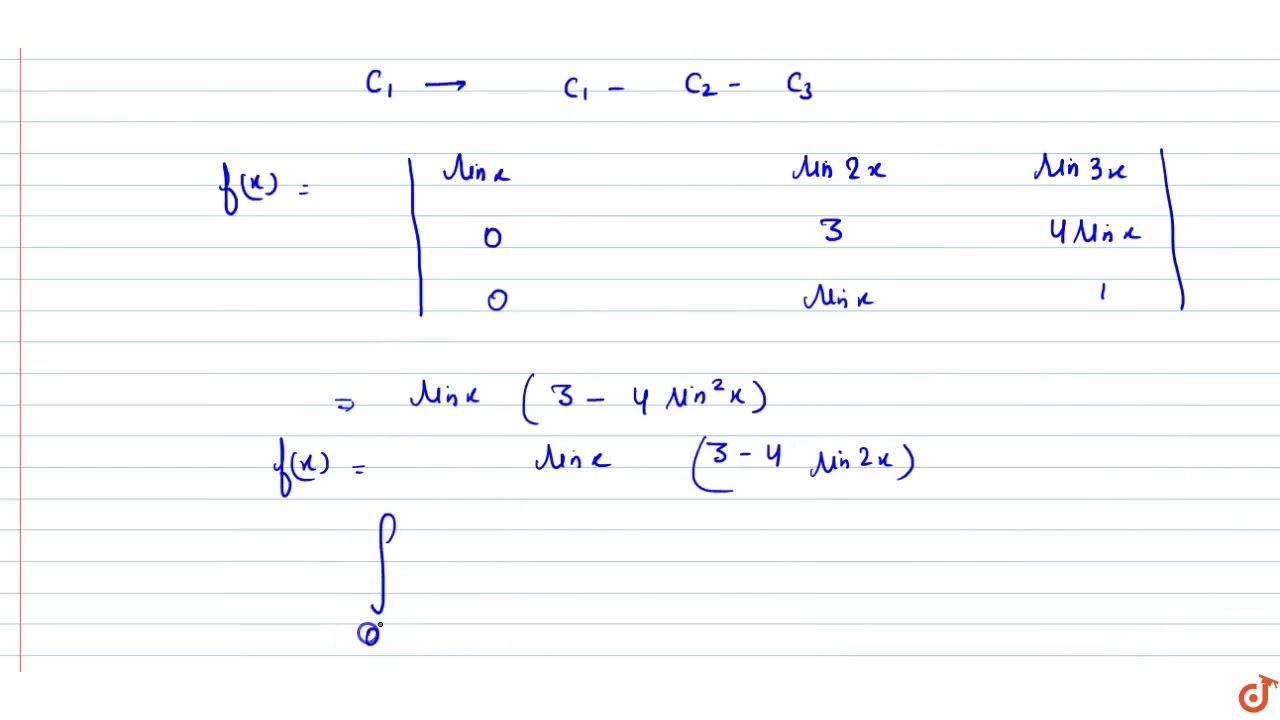 C₁ → C₁ - C₂ - C₃
f(x) = | sin x sin 2x sin 3x |
| 0 3 4 sin x |
| 0 sin x 1 |
⇒ sin x (3 - 4 sin²x)
f(x) = sin x (3 - 4 sin 2x)
∫
0